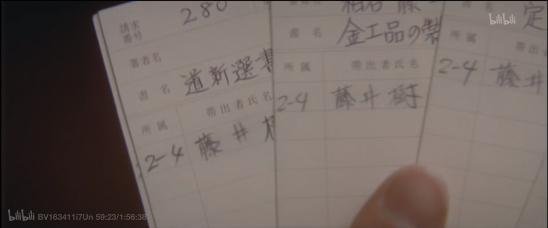 請求番号
280
著者名
書名
道新選書
所属
帯出者氏名
2-4
藤井
書名
金工品の
所属
帯出者氏名
2-4
藤井樹
定
2-4
藤井
bilibili
bilibili BV163411i7Un 59:23/1:56:38